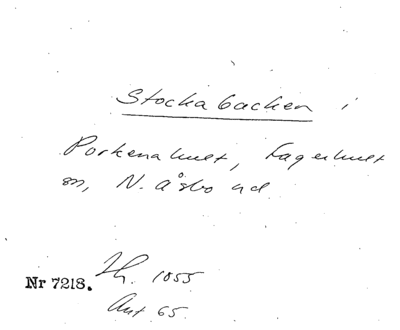 Stockabacken i
Porkenahult, Fagerhult
sn, N. Åsbo hd.
Nr 7218. Lh. 1055
Ant 65.